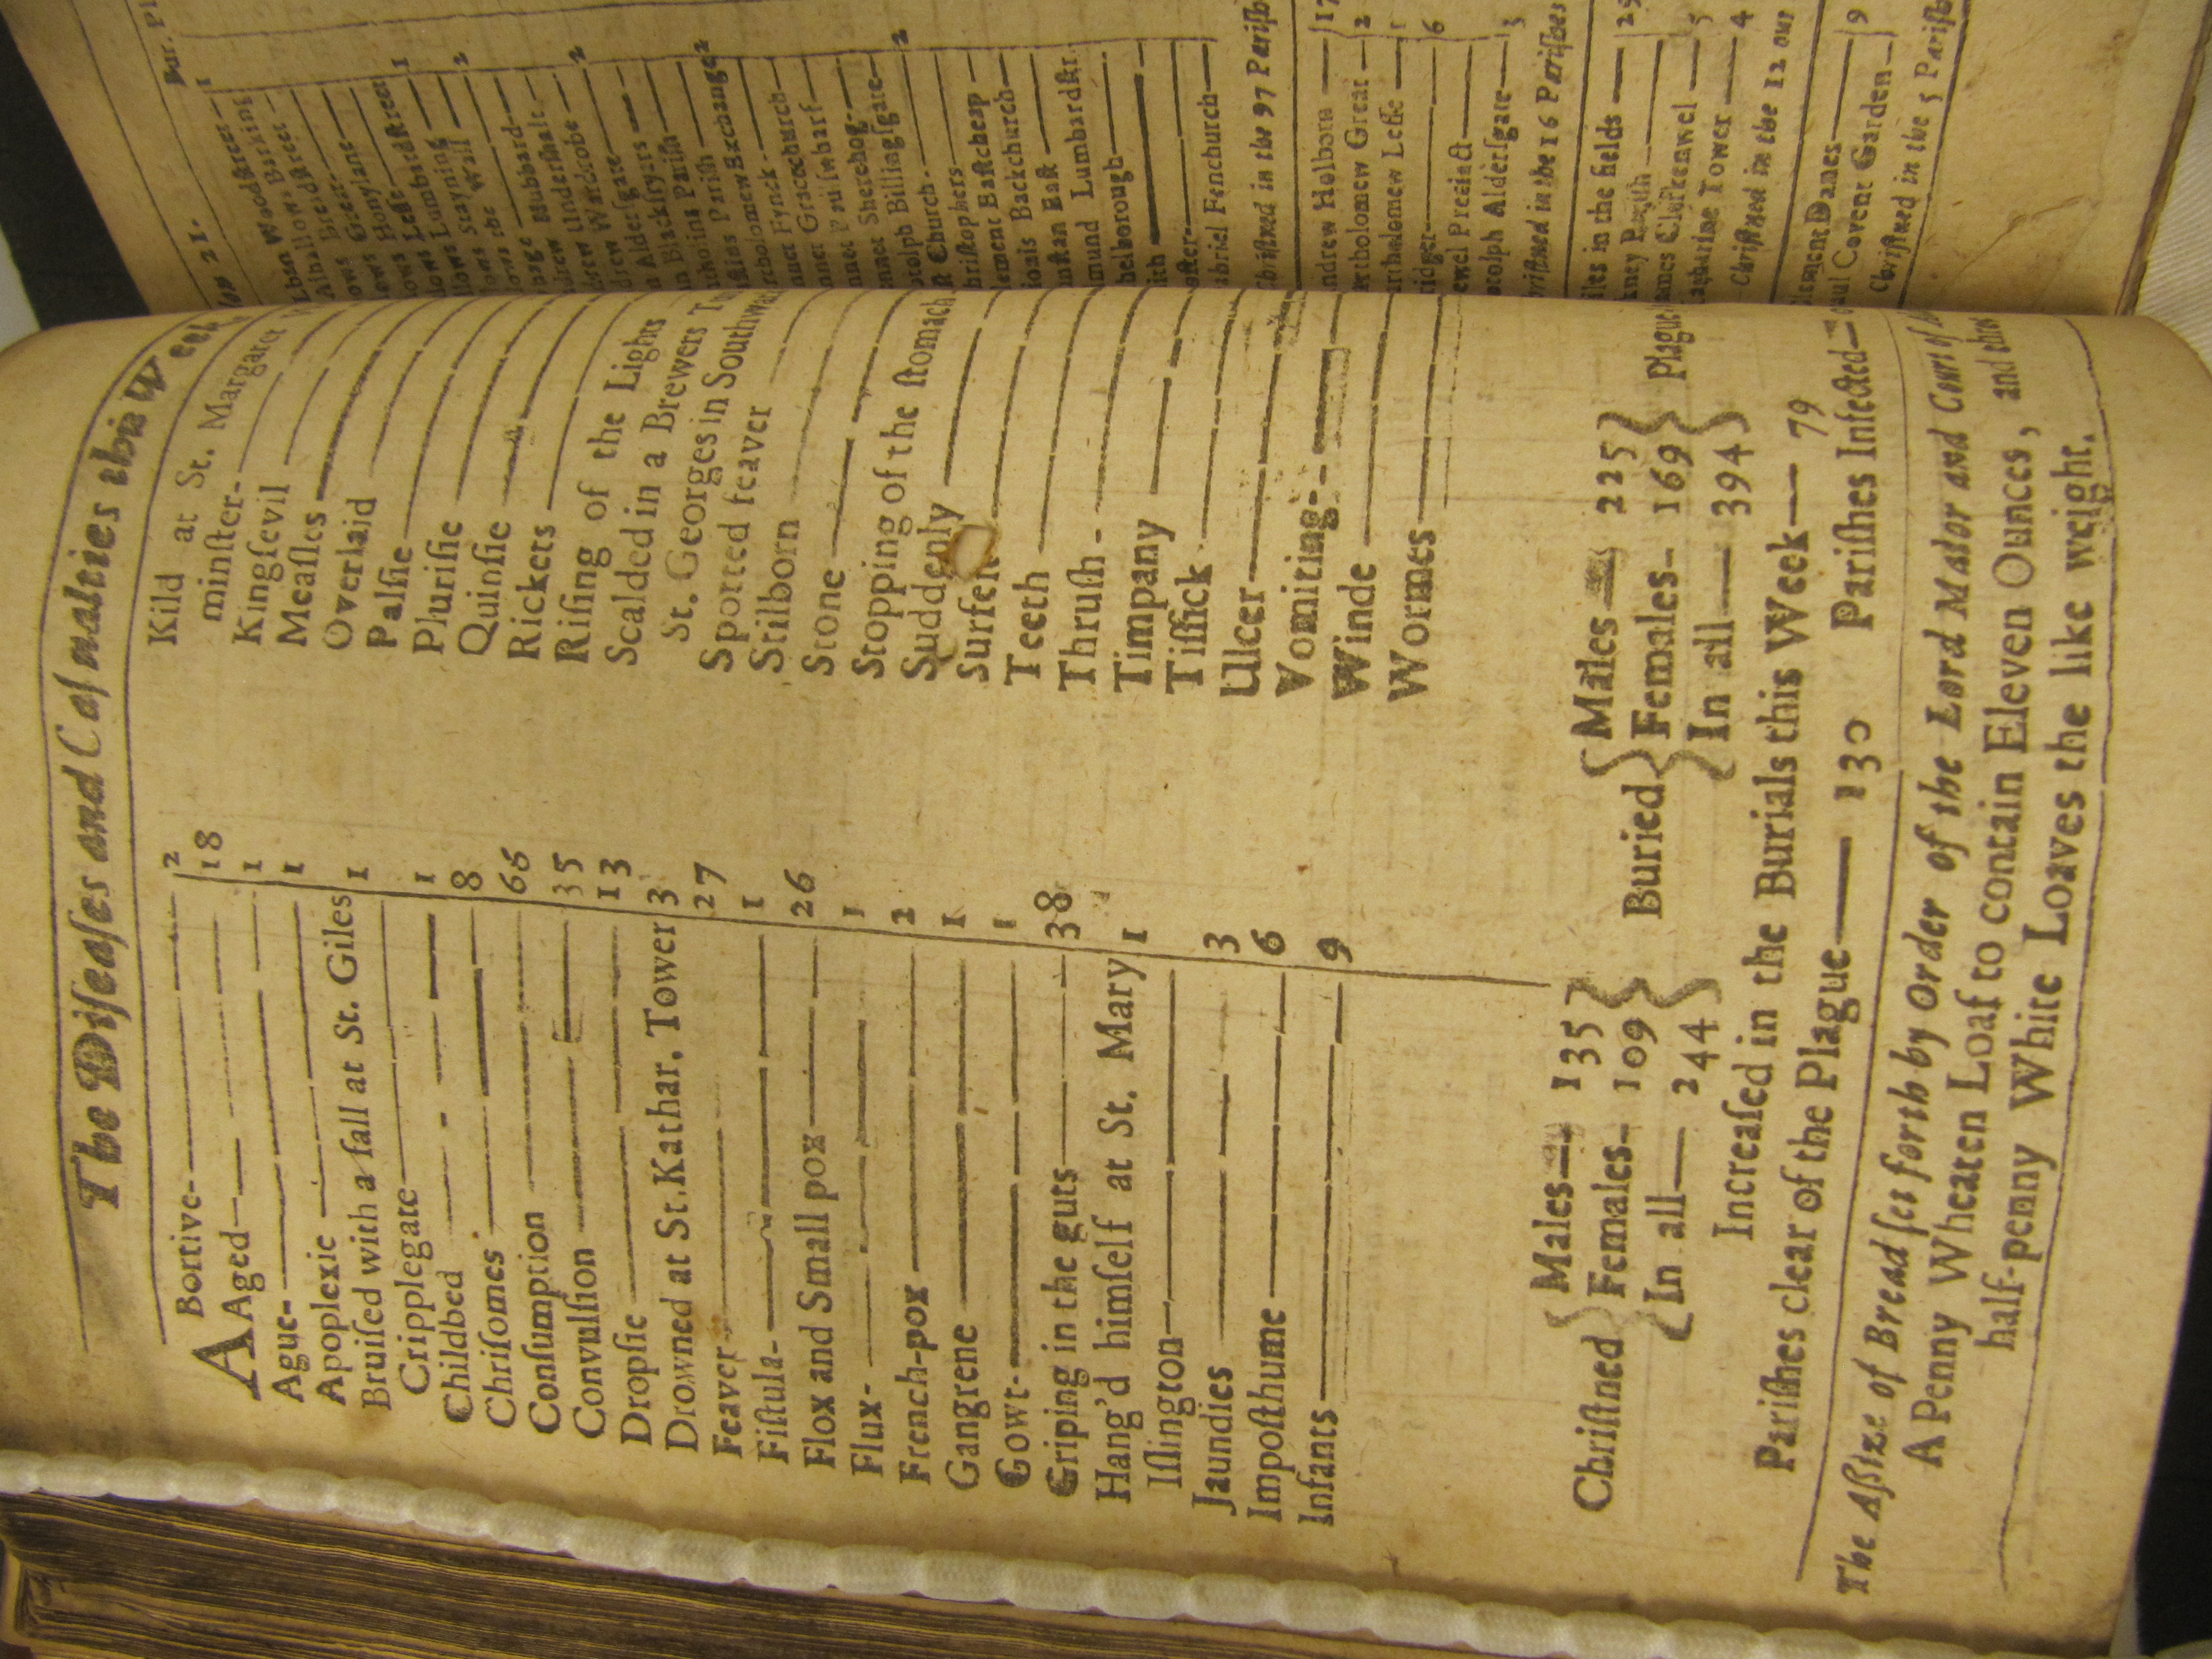 The Diſeaſes and Caſualties this Week
ABortive 2
Aged 18
Ague 1
Apoplexie 1
Bruiſed with a fall at St. Giles
Cripplegate 1
Childbed 1
Chriſomes 8
Conſumption 66
Convulſion 35
Dropſie 13
Drowned at St. Kathar. Tower 3
Feaver 27
Fiſtula 1
Flox and Small pox 26
Flux 1
French-pox 2
Gangrene 1
Gowt 1
Griping in the guts 38
Hang'd himſelf at St. Mary
Iſlington 1
Jaundies 3
Impoſthume 6
Infants 9
Kild at St. Margaret
minſter
Kingſevil
Meaſles
Overlaid
Palſie
Pluriſie
Quinſie
Rickets
Riſing of the Lights
Scalded in a Brewers
St. Georges in Southwa
Spotted feaver
Stilborn
Stone
Stopping of the ſtomach
Suddenly
Surfeit
Teeth
Thruſh
Timpany
Tiſſick
Ulcer
Vomiting
Winde
Wormes
Chriſtned { Males 135 Females 109 In all 244 }
Buried { Males 225 Females 169 In all 394 } Plague
Increaſed in the Burials this Week 79
Pariſhes clear of the Plague 130 Pariſhes Infected
The Aſsize of Bread ſet forth by Order of the Lord Maior and Court of
A Penny Wheaten Loaf to contain Eleven Ounces, and three
half-penny White Loaves the like weight.
Bur. Pl
21.
lban Woodſtreet 1
Alhallows Barking
Breadſtreet
Honylane
Leſſe 1
Lumbardſtreet
Stayning 2
the Wall
Hubbard
drew Underſhaft
drew Wardrobe 2
Alderſgate
Blackfryers
Pariſh
Pariſh
tholomew Exchange 2
Fynck
Gracechurch
Sherehog
otolph Billingſgate
Church 2
hriſtophers
lement Eaſtcheap
ionis Backchurch
unſtan Eaſt
mund Lumbardſtr
helborough
ith
oſter
abriel Fenchurch
Chriſtned in the 97 Pariſh
ndrew Holborn 17
artholomew Great 2
artholomew Leſſe 1
ridget 6
ewel Precinct
otolph Alderſgate 3
riſtned in the 16 Pariſhes
iles in the fields
kney Pariſh
ames Clerkenwel 5
atharine Tower 4
Chriſtned in the 12 out
lement Danes 9
aul Covent Garden
Chriſtned in the 5 Pariſh